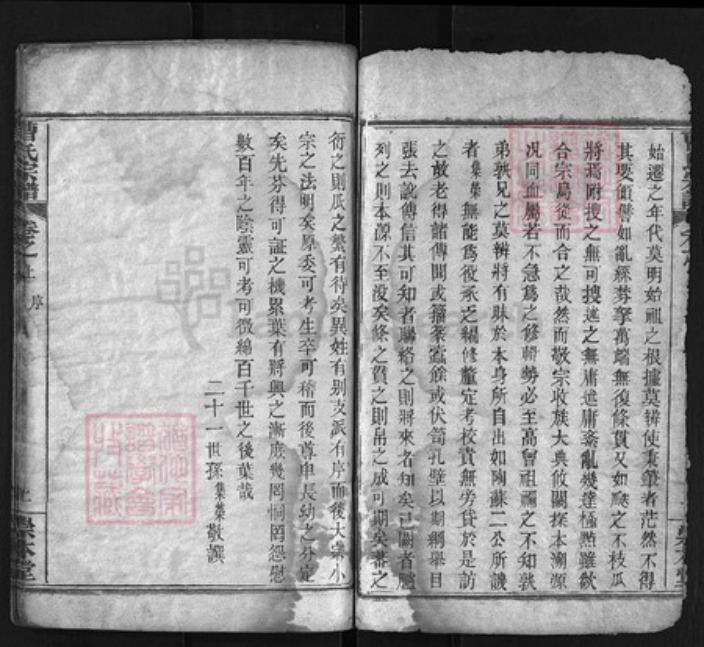 始遷之年代莫明始祖之根據莫辨使秉筆者茫然不得
其要領譬如亂絲棼挐萬端無復條貫又如飈之不枝瓜
將焉附搜之無可搜述之無庸述庸紊亂幾達極點雖欲
合宗屬從而合之哉然而敬宗收族大典攸關探本溯源
况同血屬若不急為之修輯勢必至高曾祖禰之不知孰
弟孰兄之莫辨將有昧於本身所自出如陶蘇二公所譏
者集葉無能為役承乏纂修釐定考校責無旁貸於是訪
之故老得諸傳聞或籀篆蠹餘或伏笥孔壁以期綱舉目
張去訛傳信其可知者聯絡之則將來者知矣已闕者臚
列之則本源不至沒矣條之貫之則帛之成可期矣蕃之
衍之則瓜之緜有待矣異姓有别支派有序而後大宗小
宗之法明矣原委可考生卒可稽而後尊卑長幼之分定
矣先芬得可証之機累葉有將興之漸庶幾罔恫罔怨慰
數百年之陰靈可考可徵綿百千世之後葉哉
二十一世孫集葉敬譔
曹氏宗譜
卷之上
序
上
崇本堂